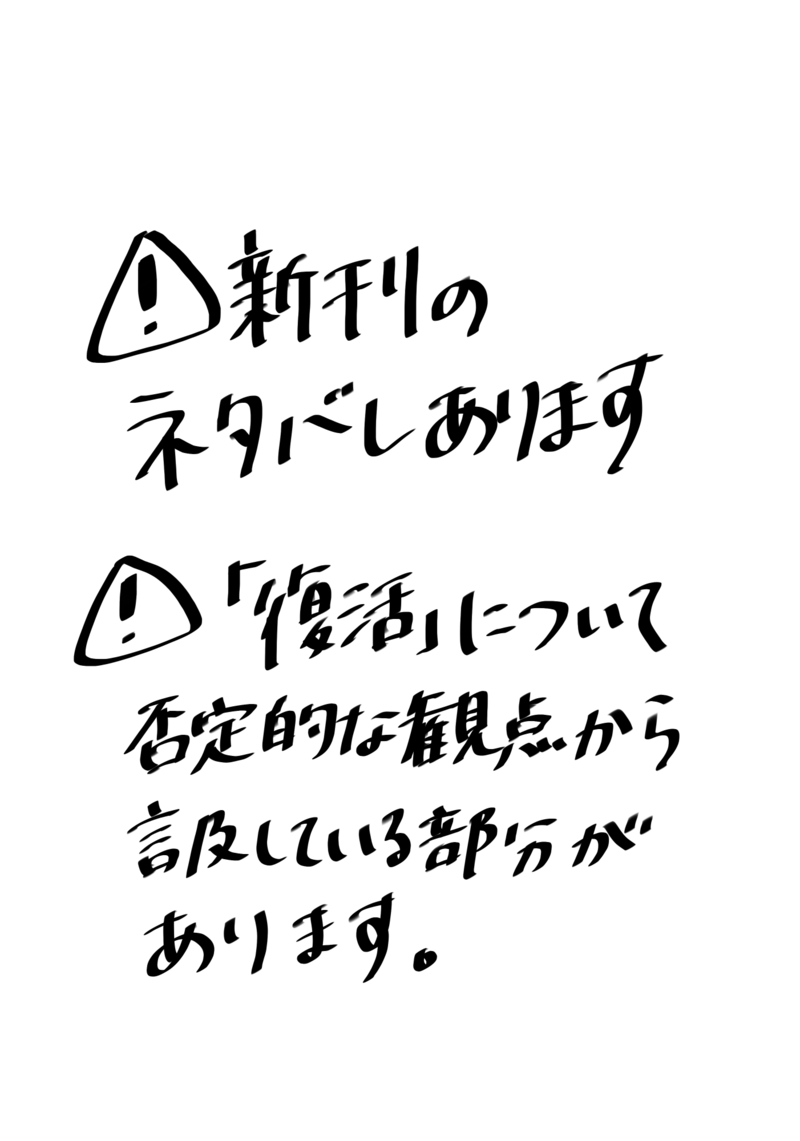 ⚠新刊の
ネタバレあります
⚠「復活」について
否定的な観点から
言及している部分が
あります。